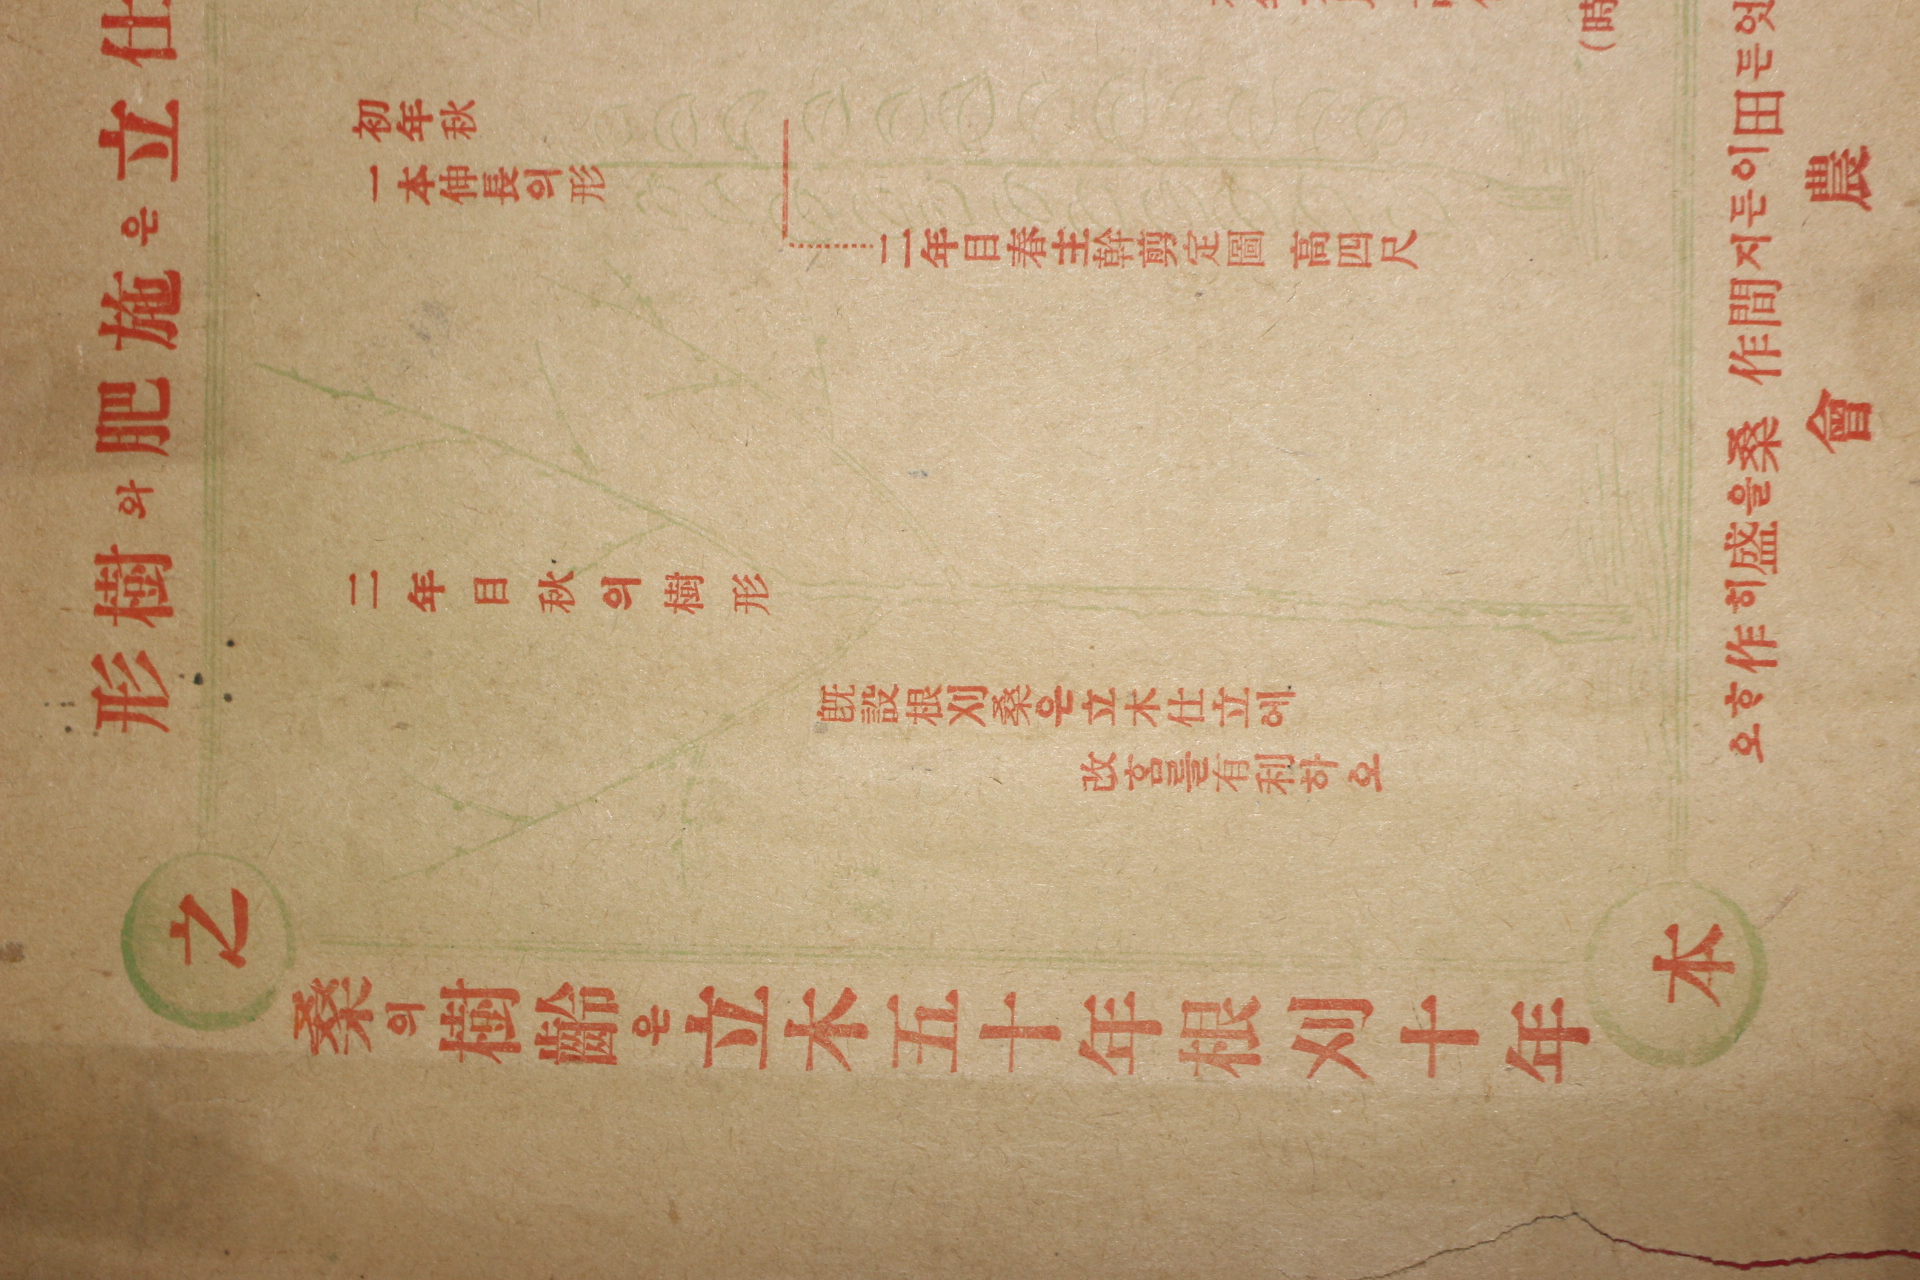 仕立은施肥와樹形
初年秋
一本伸長의形
二年目春主幹剪定圖 高四尺
二年目秋의樹形
既設根刈桑은立木仕立에
改홈를有利하오
之
桑의樹齡은立木五十年根刈十年
本
(時
엇든田이든지間作 桑을盛히作호오
農會